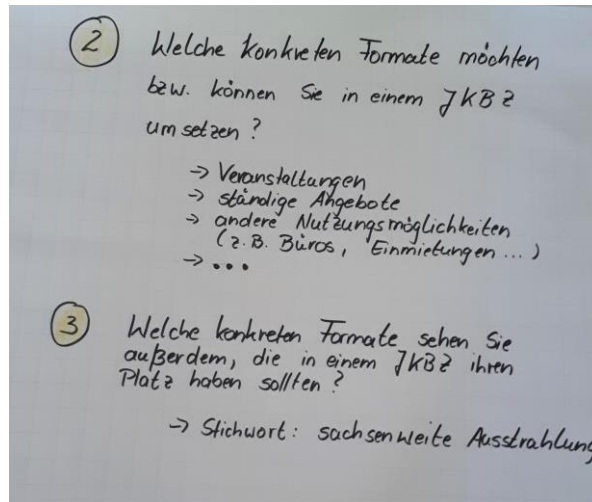 2 Welche konkreten Formate möchten
bzw. können Sie in einem JKBZ
umsetzen?
→ Veranstaltungen
→ ständige Angebote
→ andere Nutzungsmöglichkeiten
(z.B. Büros, Einmietungen ...)
→ ...
3 Welche konkreten Formate sehen Sie
außerdem, die in einem JKBZ ihren
Platz haben sollten?
→ Stichwort: sachsenweite Ausstrahlung